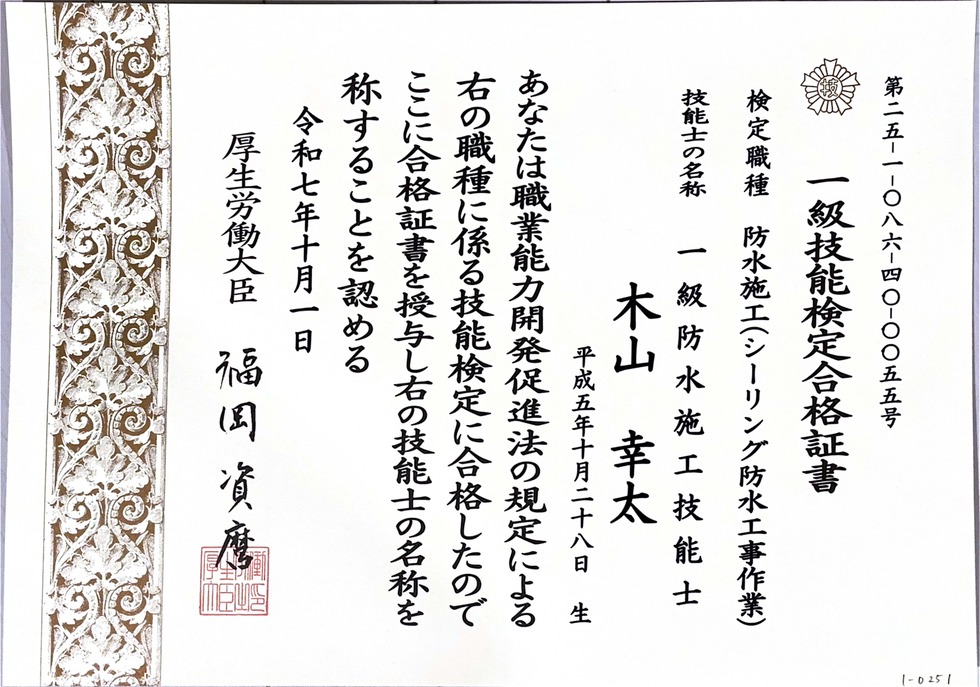 第二五-一-〇八六-四〇-〇〇五五号
技
一級技能検定合格証書
検定職種 防水施工(シーリング防水工事作業)
技能士の名称 一級防水施工技能士
木山 幸太
平成五年十月二十八日 生
あなたは職業能力開発促進法の規定による
右の職種に係る技能検定に合格したので
ここに合格証書を授与し右の技能士の名称を
称することを認める
令和七年十月一日
厚生労働大臣 福岡 資麿
1-0251